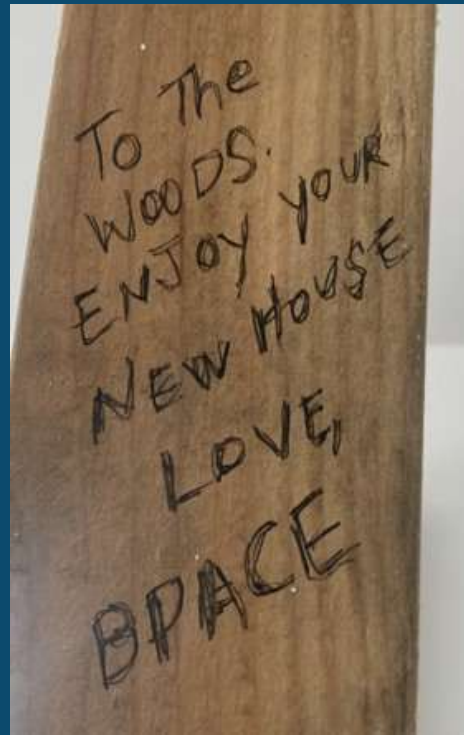 To The
WOODS.
ENJOY YOUR
NEW HOUSE
LOVE,
BPACE